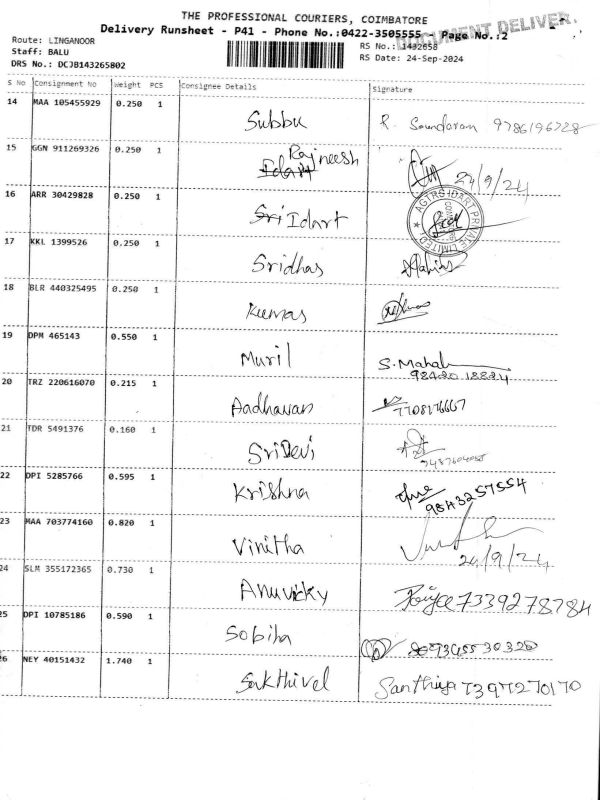 THE PROFESSIONAL COURIERS, COIMBATORE
DOCUMENT DELIVER.
Delivery Runsheet - P41 - Phone No.:0422-3505555 - Page No.:2
Route: LINGANOOR
RS No.: 1432658
Staff: BALU
RS Date: 24-Sep-2024
DRS No.: DCJB143265802
S No Consignment No Weight PCS Consignee Details Signature
14 MAA 105455929 0.250 1
Subbu R. Soundaram 9786196728
15 GGN 911269326 0.250 1
Rajneesh
Idart 24/9/24
16 ARR 30429828 0.250 1
Sri Idart AGTRS IDART PRIVATE LIMITED
17 KKL 1399526 0.250 1
Sridhas
18 BLR 440325495 0.250 1
Kumas
19 DPM 465143 0.550 1
Muril S. Mahal
98420 18824
20 TRZ 220616070 0.215 1
Aadhavan 7708176667
21 TDR 5491376 0.160 1
SriDevi
22 DPI 5285766 0.595 1
Krishna 9843257554
23 MAA 703774160 0.820 1
Vinitha
24/9/24
24 SLM 355172365 0.730 1
Anuvicky 7339278784
25 DPI 10785186 0.590 1
Sobiha
26 NEY 40151432 1.740 1
Sakthivel Santhiya 7397270170